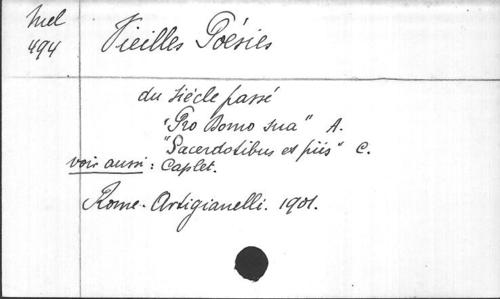 Mel
494
Vieilles Poésies
du siècle passé
"Pro Domo sua" A.
"Sacerdotibus et piis" C.
voir aussi: Caplet.
Rome. Artigianelli. 1901.